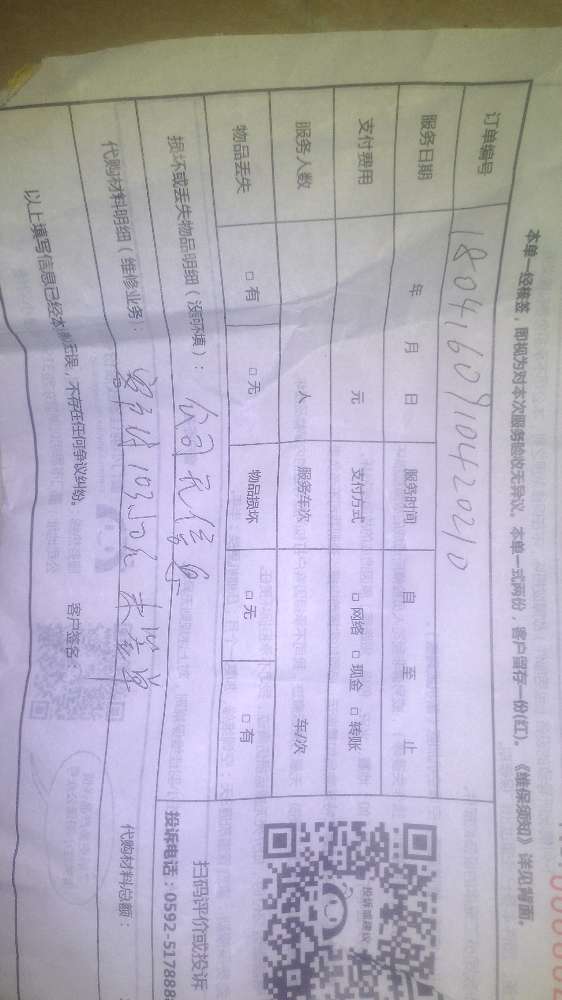 本单一经核签，即视为对本次服务验收无异议。本单一式两份，客户留存一份(红)。《维保须知》详见背面。
订单编号 180416091042010
服务日期 年 月 日 服务时间 自 至 止
支付费用 元 支付方式 □网络 □现金 □转账
服务人数 人 服务车次 车/次
物品丢失 □有 □无 物品损坏 □无 □有
损坏或丢失物品明细（没有不填）： 公司无信息
代购材料明细（维修业务）： 1050元 未签单
代购材料总额：
以上填写信息已经本人确认无误，不存在任何争议纠纷。 客户签名：
投诉或建议
扫码评价或投诉
投诉电话：0592-517888